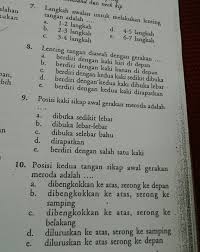 7. Langkah awalan untuk melakukan lenting
tangan adalah ....
a. 1-2 langkah d. 4-5 langkah
b. 2-3 langkah e. 6-7 langkah
c. 3-4 langkah
8. Lenting tangan diawali dengan gerakan ....
a. berdiri dengan kaki kiri di depan
b. berdiri dengan kaki kanan di depan
c. berdiri dengan kedua kaki sedikit dibuka
d. berdiri dengan kedua kaki dibuka lebar
e. berdiri dengan kedua kaki dirapatkan
9. Posisi kaki sikap awal gerakan meroda adalah
....
a. dibuka sedikit lebar
b. dibuka lebar-lebar
c. dibuka selebar bahu
d. dirapatkan
e. berdiri dengan salah satu kaki
10. Posisi kedua tangan sikap awal gerakan
meroda adalah ....
a. dibengkokkan ke atas, serong ke depan
b. dibengkokkan ke atas, serong ke
samping
c. dibengkokkan ke atas, serong ke
belakang
d. diluruskan ke atas, serong ke samping
e. diluruskan ke atas, serong ke depan